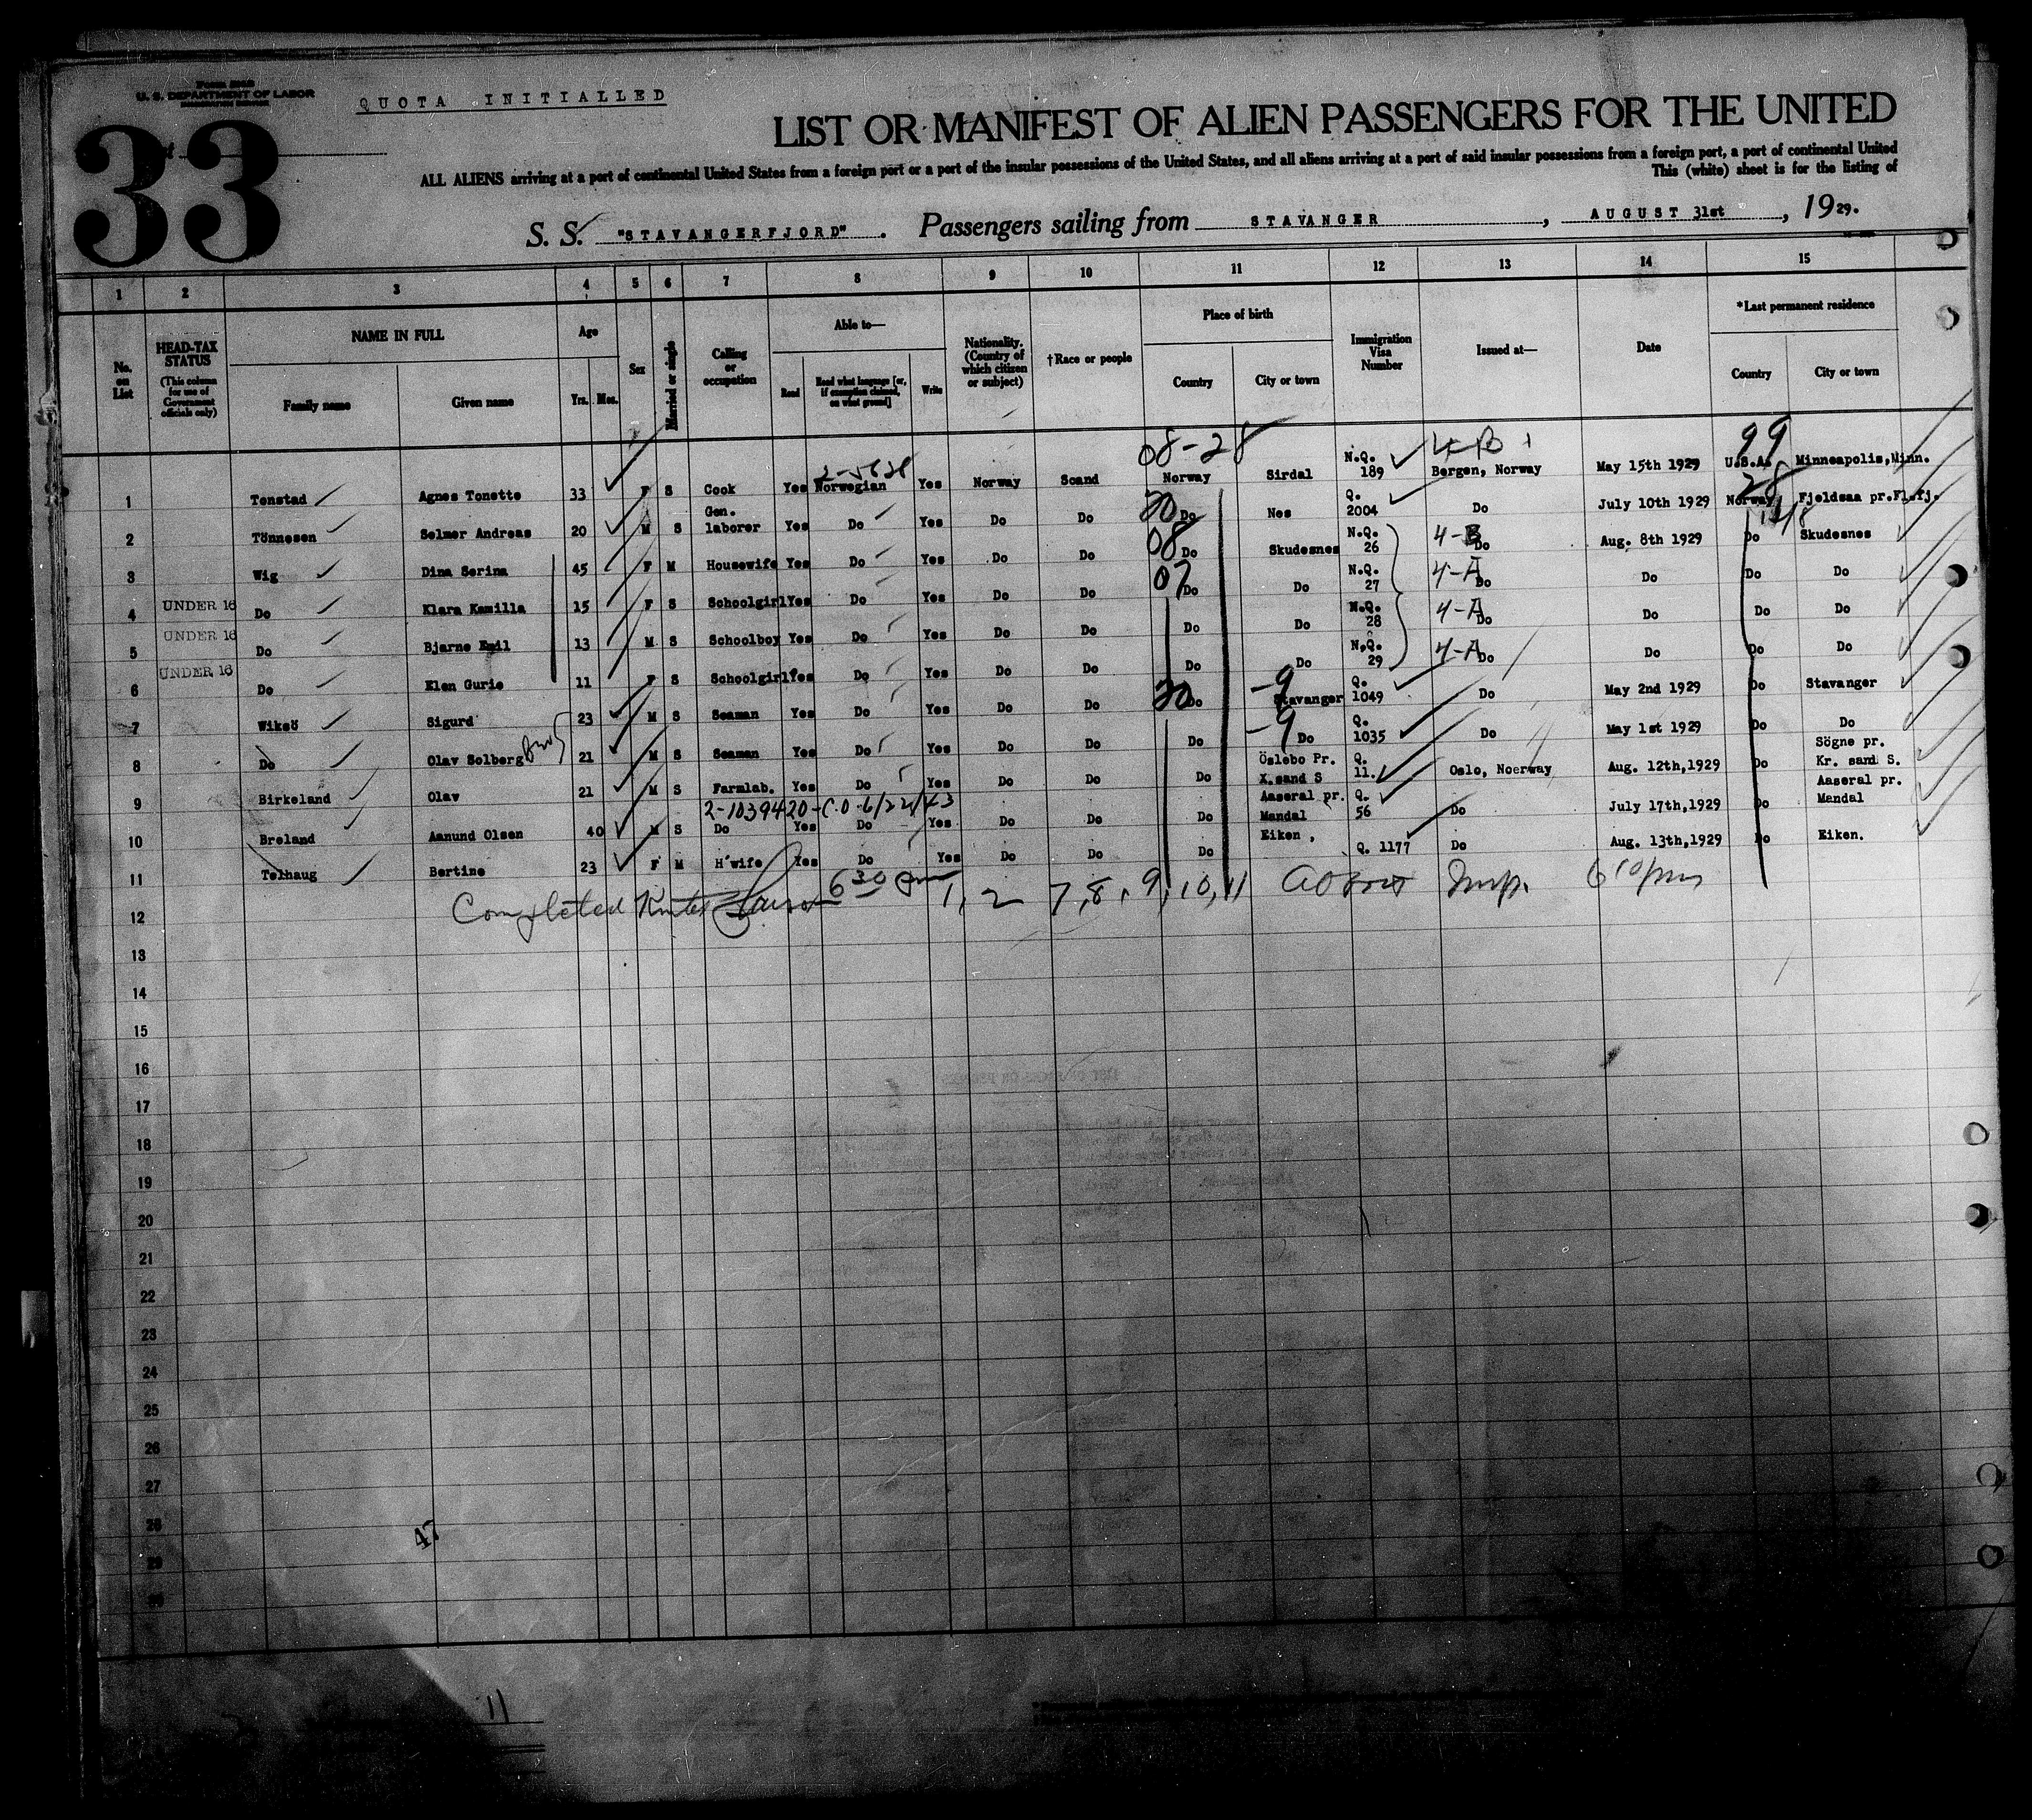 Form 500
U. S. DEPARTMENT OF LABOR
QUOTA INITIALLED
33
LIST OR MANIFEST OF ALIEN PASSENGERS FOR THE UNITED
ALL ALIENS arriving at a port of continental United States from a foreign port or a port of the insular possessions of the United States, and all aliens arriving at a port of said insular possessions from a foreign port, a port of continental United
This (white) sheet is for the listing of
S. S. "STAVANGERFJORD" . Passengers sailing from STAVANGER , AUGUST 31st , 1929.
1 2 3 4 5 6 7 8 9 10 11 12 13 14 15
No. on List
HEAD-TAX STATUS (This column for use of Government officials only)
NAME IN FULL
Family name Given name
Age
Yrs. Mos.
Sex
Married or single
Calling or occupation
Able to—
Read Read what language [or, if exemption claimed, on what ground] Write
Nationality. (Country of which citizen or subject)
†Race or people
Place of birth
Country City or town
Immigration Visa Number
Issued at—
Date
*Last permanent residence
Country City or town
08-28 4-B 99
1 Tonstad Agnes Tonette 33 F S Cook Yes Norwegian Yes Norway Scand Norway Sirdal N.Q. 189 Bergen, Norway May 15th 1929 U.S.A. Minneapolis,Minn.
2 Tönnesen Selmer Andreas 20 M S Gen. laborer Yes Do Yes Do Do 20 Do Nes Q. 2004 Do July 10th 1929 28 Norway Fjeldsaa pr.Fl.fj.
3 Wig Dina Serina 45 F M Housewife Yes Do Yes Do Do 08 Do Skudesnes N.Q. 26 4-B Do Aug. 8th 1929 Do Skudesnes
4 UNDER 16 Do Klara Kamilla 15 F S Schoolgirl Yes Do Yes Do Do 07 Do Do N.Q. 27 4-A Do Do Do Do
5 UNDER 16 Do Bjarne Emil 13 M S Schoolboy Yes Do Yes Do Do Do Do N.Q. 28 4-A Do Do Do Do
6 UNDER 16 Do Elen Gurie 11 F S Schoolgirl Yes Do Yes Do Do Do Do N.Q. 29 4-A Do Do Do Do
7 Wiksö Sigurd 23 M S Seaman Yes Do Yes Do Do 20 Do -9 Stavanger Q. 1049 Do May 2nd 1929 Do Stavanger
8 Do Olav Solberg Bro 21 M S Seaman Yes Do Yes Do Do Do -9 Do Q. 1035 Do May 1st 1929 Do Do
9 Birkeland Olav 21 M S Farmlab. Yes Do Yes Do Do Do Öslebo Pr. X.sand S Q. 11. Oslo, Noerway Aug. 12th,1929 Do Sögne pr. Kr. sand S.
2-1039420-C.O. 6/22/43
10 Breland Aanund Olsen 40 M S Do Yes Do Yes Do Do Do Aaseral pr. Mandal Q. 56 Do July 17th,1929 Do Aaseral pr. Mandal
11 Telhaug Bertine 23 F M H'wife Yes Do Yes Do Do Do Eiken , Q. 1177 Do Aug. 13th,1929 Do Eiken.
12 Completed 6 30 1, 2 7, 8, 9, 10, 11 Insp. 6 10 pm
13
14
15
16
17
18
19
20
21
22
23
24
25
26
27
28
29
30
47
11